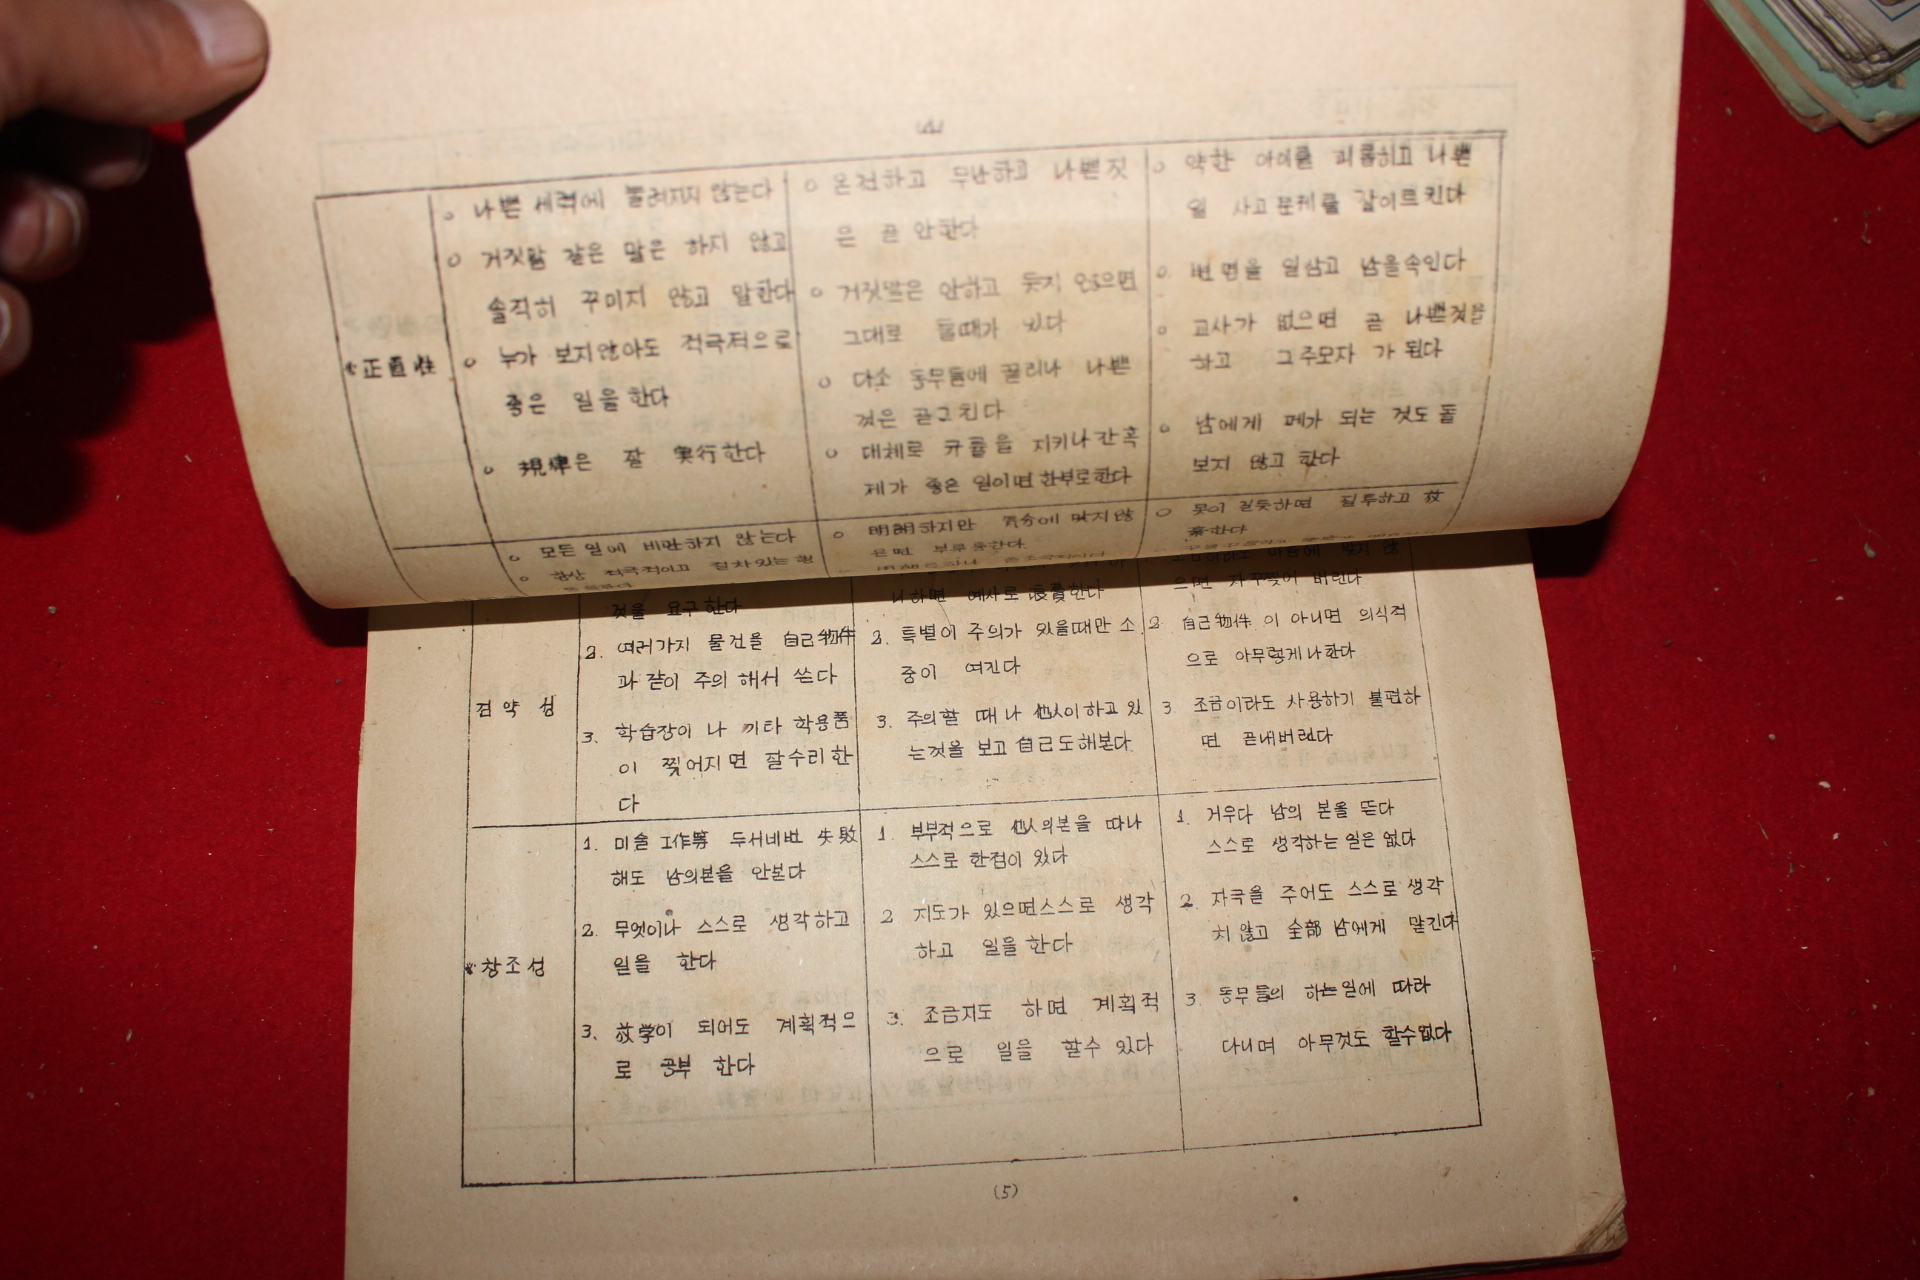 (4)
*正直性
○ 나쁜 세력에 눌려지지 않는다
○ 거짓말 같은 말은 하지 않고
솔직히 꾸미지 않고 말한다
○ 누가 보지않아도 적극적으로
좋은 일을 한다
○ 規律은 잘 実行한다
○ 온건하고 무난하고 나쁜짓
은 곧 안한다
○ 거짓말은 안하고 듯지 않으면
그대로 둘때가 있다
○ 다소 동무들에 끌리나 나쁜
것은 곧그친다
○ 대체로 규률을 지키나 간혹
제가 좋은 일이면 한부로한다
○ 약한 아이를 괴롭히고 나쁜
일 사고문제를 잘이르킨다
○ 번면을 일삼고 남을속인다
○ 교사가 없으면 곧 나쁜짓을
하고 그주모자 가 된다
○ 남에게 페가 되는 것도 돌
보지 않고 한다
○ 모든일에 비관하지 않는다
○ 항상 적극적이고 질차있는 행
○ 明朗하지만 기분에 맞지않
은면
○ 못이 걷듯하면 질투하고
검약성
것을 요구한다
2. 여러가지 물건을 自己物件
과 같이 주의 해서 쓴다
3. 학습장이 나 끼타 학용품
이 찢어지면 잘수리한
다
나하면 예사로 浪費한다
2. 특별이 주의가 있을때만 소
중이 여긴다
3. 주의할 때나 他人이하고 있
는것을 보고 自己도해본다
으면 자꾸찢어 버린다
2 自己物件 이 아니면 의식적
으로 아무렇게나한다
3 조금이라도 사용하기 불편하
면 곧내버린다
*창조성
1. 미술 工作等 두서네번 失敗
해도 남의본을 안본다
2. 무엇이나 스스로 생각하고
일을 한다
3. 放学이 되어도 계획적으
로 공부 한다
1. 부부적으로 他人의본을 따나
스스로 한점이 있다
2 지도가 있으면스스로 생각
하고 일을 한다
3. 조금지도 하면 계획적
으로 일을 할수 있다
1. 거우다 남의 본을 뜬다
스스로 생각하는 일은 없다
2. 자극을 주어도 스스로 생각
치 않고 全部 남에게 맡긴다
3. 동무들의 하는일에 따라
다니며 아무것도 할수없다
(5)